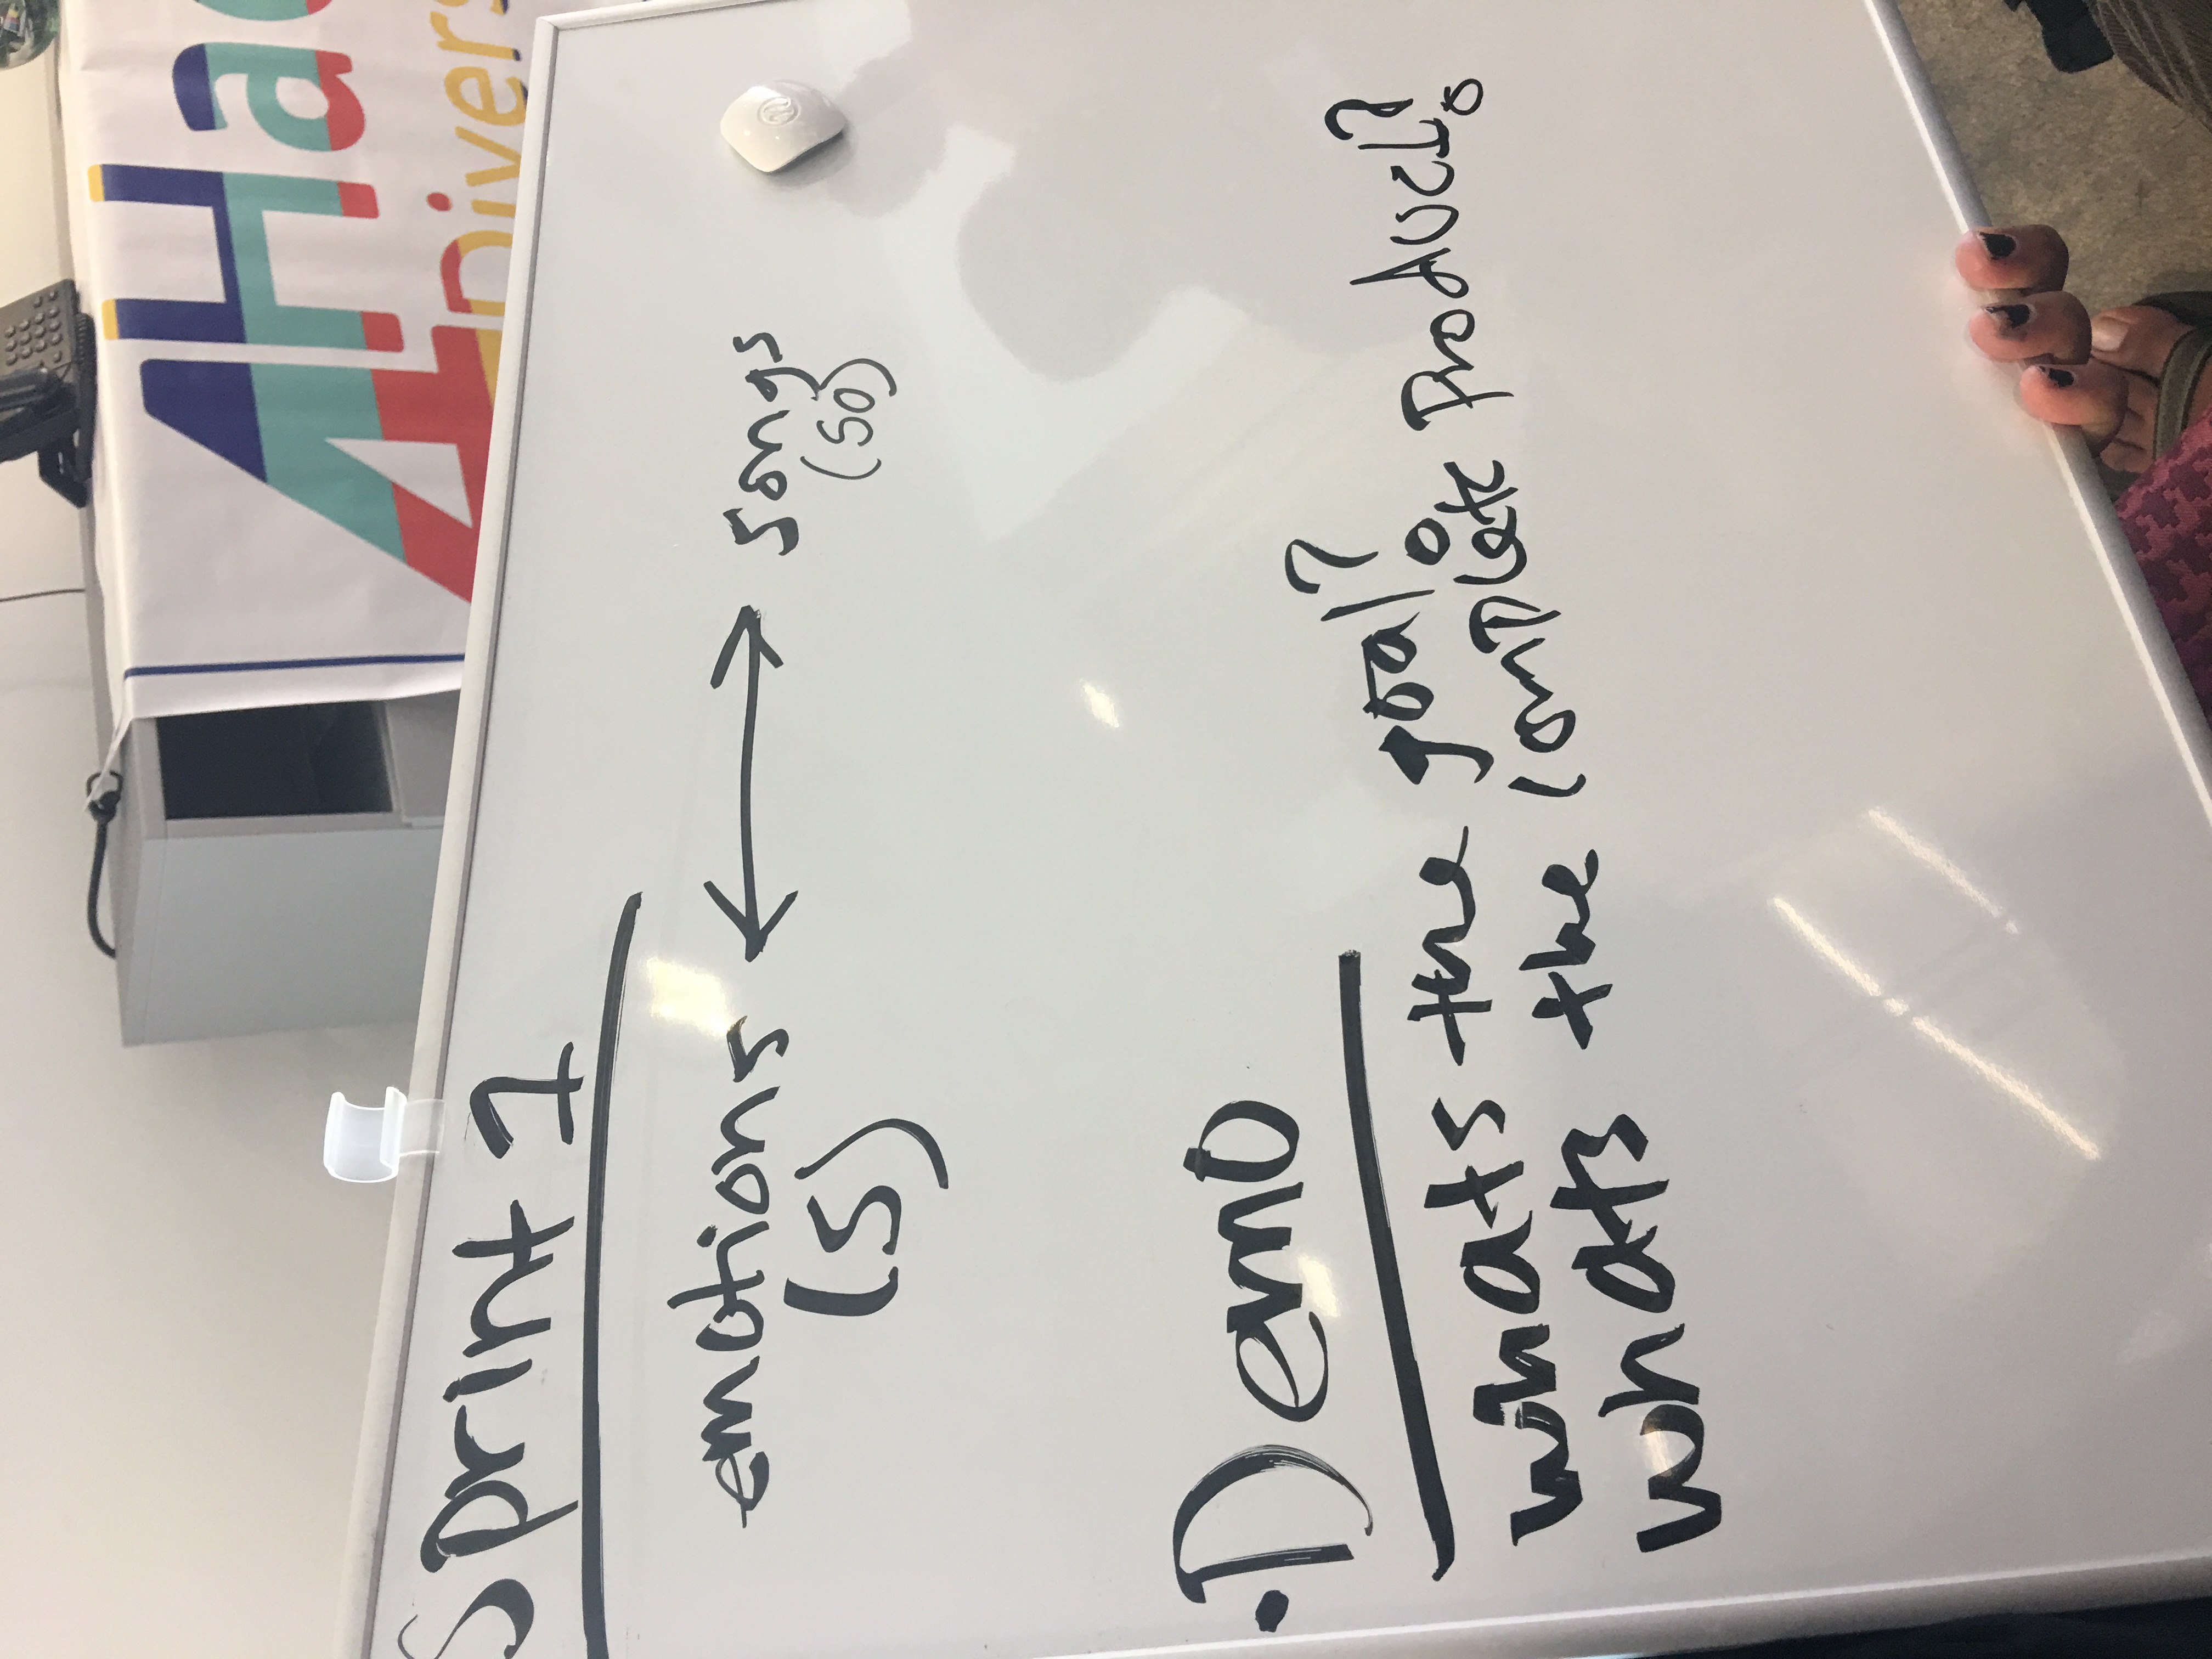 Hac
Divers
Sprint 1
emotions ⟷ songs
(5) (50)
• Demo
whats the goal?
whats the complete Product?